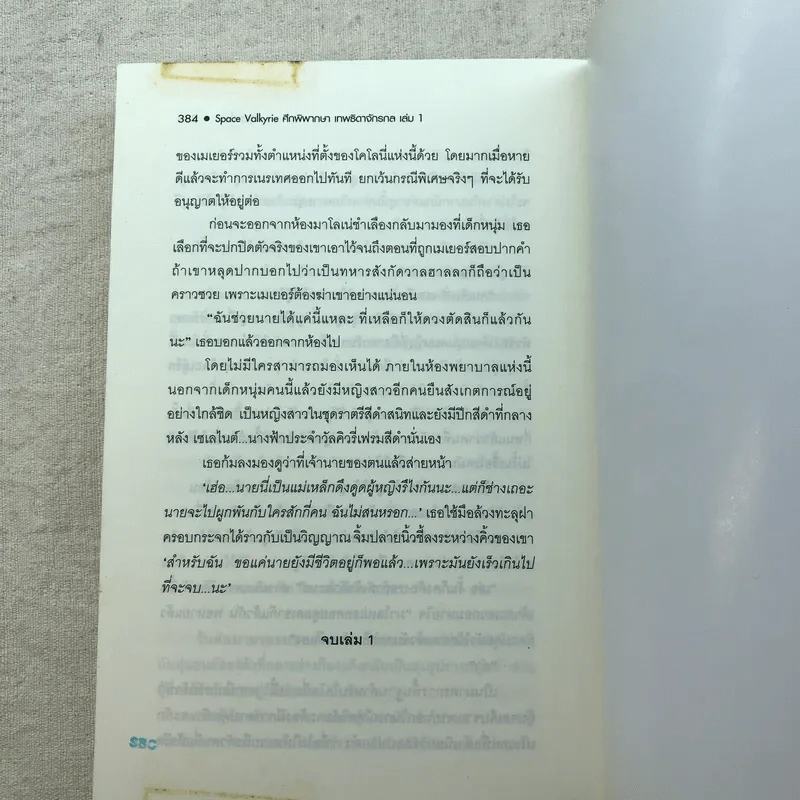 384 ● Space Valkyrie ศึกพิพากษา เทพธิดาจักรกล เล่ม 1
ของเมเยอร์รวมทั้งตำแหน่งที่ตั้งของโคโลนี่แห่งนี้ด้วย โดยมากเมื่อหาย
ดีแล้วจะทำการเนรเทศออกไปทันที ยกเว้นกรณีพิเศษจริงๆ ที่จะได้รับ
อนุญาตให้อยู่ต่อ
ก่อนจะออกจากห้องมาโลเน่ชำเลืองกลับมามองที่เด็กหนุ่ม เธอ
เลือกที่จะปกปิดตัวจริงของเขาเอาไว้จนถึงตอนที่ถูกเมเยอร์สอบปากคำ
ถ้าเขาหลุดปากบอกไปว่าเป็นทหารสังกัดวาลฮาลลาก็ถือว่าเป็น
คราวซวย เพราะเมเยอร์ต้องฆ่าเขาอย่างแน่นอน
“ฉันช่วยนายได้แค่นี้แหละ ที่เหลือก็ให้ดวงตัดสินก็แล้วกัน
นะ” เธอบอกแล้วออกจากห้องไป
โดยไม่มีใครสามารถมองเห็นได้ ภายในห้องพยาบาลแห่งนี้
นอกจากเด็กหนุ่มคนนี้แล้วยังมีหญิงสาวอีกคนยืนสังเกตการณ์อยู่
อย่างใกล้ชิด เป็นหญิงสาวในชุดราตรีสีดำสนิทและยังมีปีกสีดำที่กลาง
หลัง เซเลไนต์...นางฟ้าประจำวัลคิวรี่เฟรมสีดำนั่นเอง
เธอก้มลงมองดูว่าที่เจ้านายของตนแล้วส่ายหน้า
‘เฮ่อ...นายนี่เป็นแม่เหล็กดึงดูดผู้หญิงรึไงกันนะ...แต่ก็ช่างเถอะ
นายจะไปผูกพันกับใครสักกี่คน ฉันไม่สนหรอก...’ เธอใช้มือล้วงทะลุฝา
ครอบกระจกได้ราวกับเป็นวิญญาณ จิ้มปลายนิ้วชี้ลงระหว่างคิ้วของเขา
‘สำหรับฉัน ขอแค่นายยังมีชีวิตอยู่ก็พอแล้ว...เพราะมันยังเร็วเกินไป
ที่จะจบ...นะ’
จบเล่ม 1